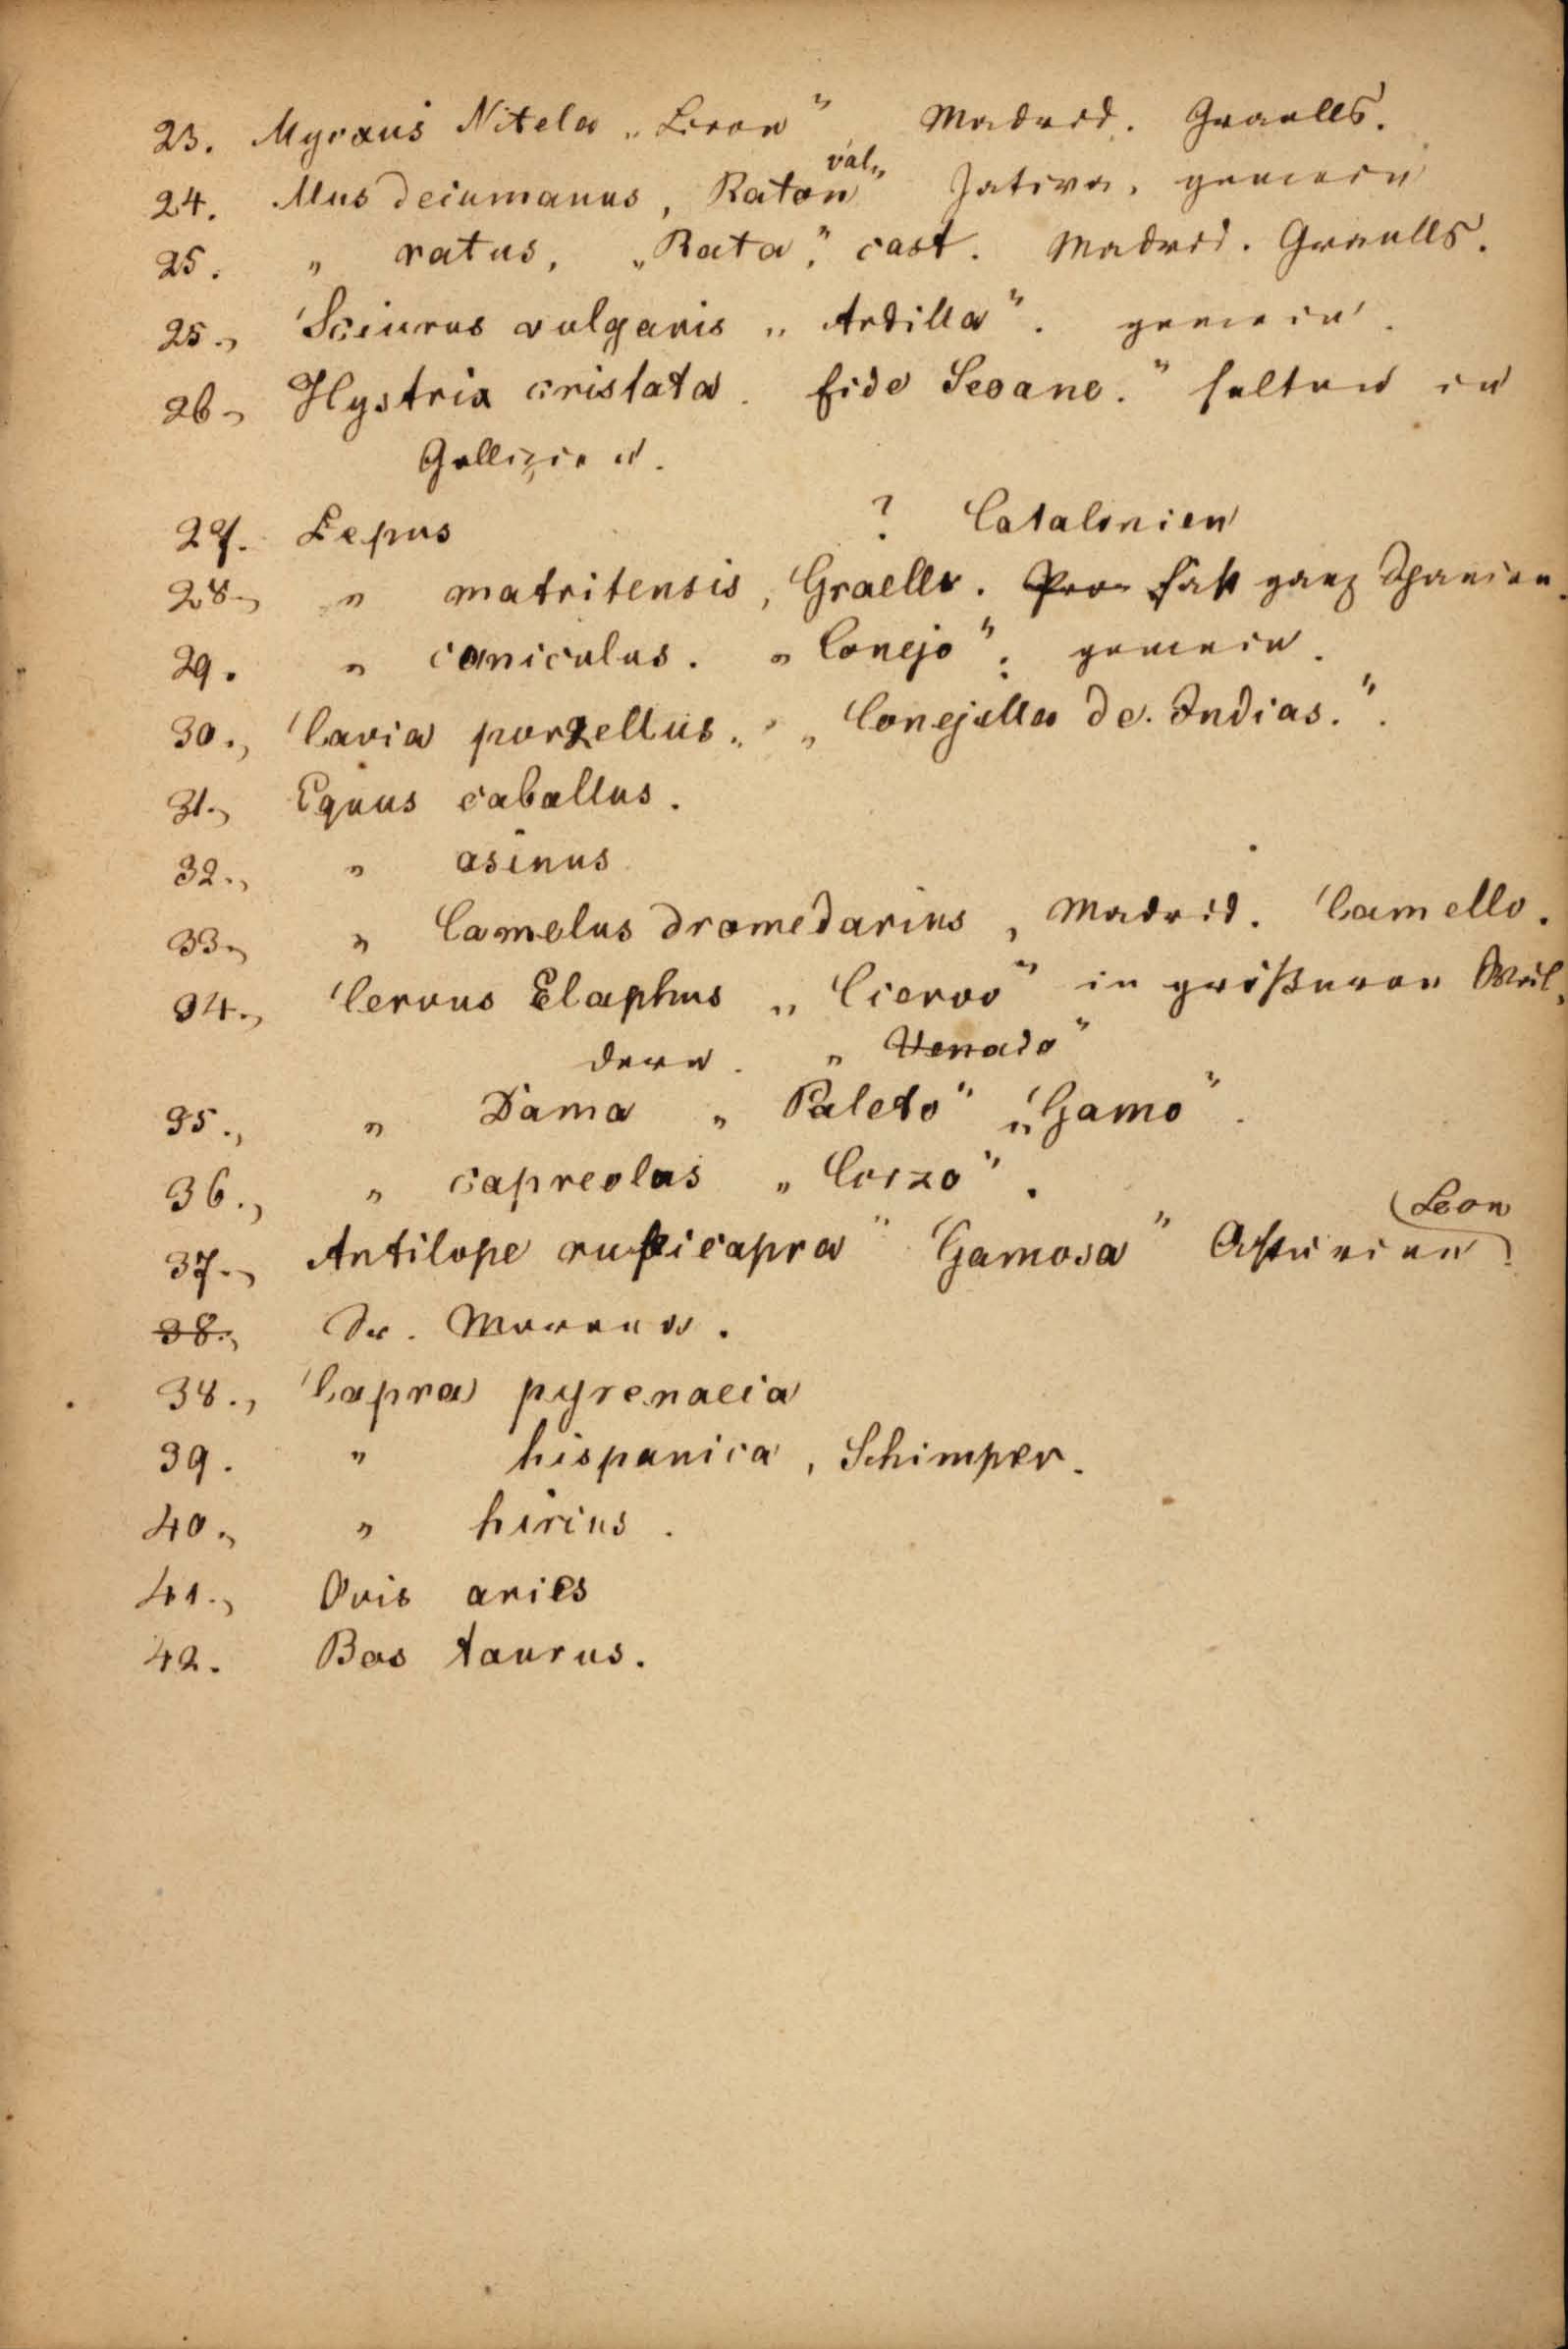 23. Myoxus Nitela „Liron" Madrid. Graells.
24. Mus decumanus, Raton" val„ Jativa. gemein
25. " ratus, „Rata", cast. Madrid. Graells.
25., Sciurus vulgaris „Ardilla". gemein.
26., Hystrix cristata. fide Seoane." selten in
Gallizien.
27. Lepus ? Catalonien
28., " matritensis, Graells. Pro fast ganz Spanien.
29. " caniculus. „Conejo". gemein.
30., Cavia porzellus. „Conejillo de. Indias.".
31., Equus caballus.
32., " asinus
33., " Camelus dromedarius, Madrid. Camello.
34., Cervus Elaphus „Ciervo" in größeren Wäl-
dern. „Venado"
35., " Dama „Paleto" „Gamo".
36., " capreolus „Corzo".
37., Antilope rupicapra "Gamosa" Asturien Leon
38., Sr. Morena.
38., Capra pyrenaeia
39. " hispanica, Schimper.
40., " hircus.
41., Ovis aries
42. Bos taurus.